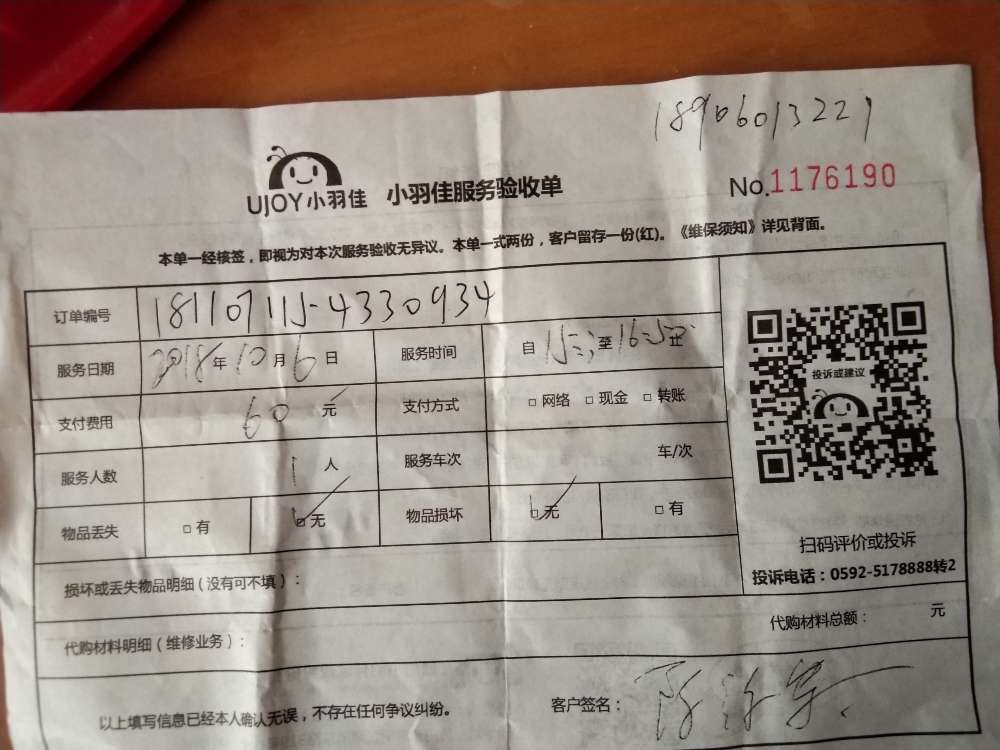 18906013221
UJOY小羽佳 小羽佳服务验收单 No.1176190
本单一经核签，即视为对本次服务验收无异议。本单一式两份，客户留存一份(红)。《维保须知》详见背面。
订单编号 181107115-4330934
服务日期 2018年10月6日 服务时间 自 至 止
支付费用 60元 支付方式 □ 网络 □ 现金 □ 转账
服务人数 1 人 服务车次 车/次
物品丢失 □ 有 □ 无 物品损坏 □ 无 □ 有
投诉或建议
扫码评价或投诉
投诉电话：0592-5178888转2
损坏或丢失物品明细（没有可不填）：
代购材料明细（维修业务）： 代购材料总额： 元
以上填写信息已经本人确认无误，不存在任何争议纠纷。 客户签名：